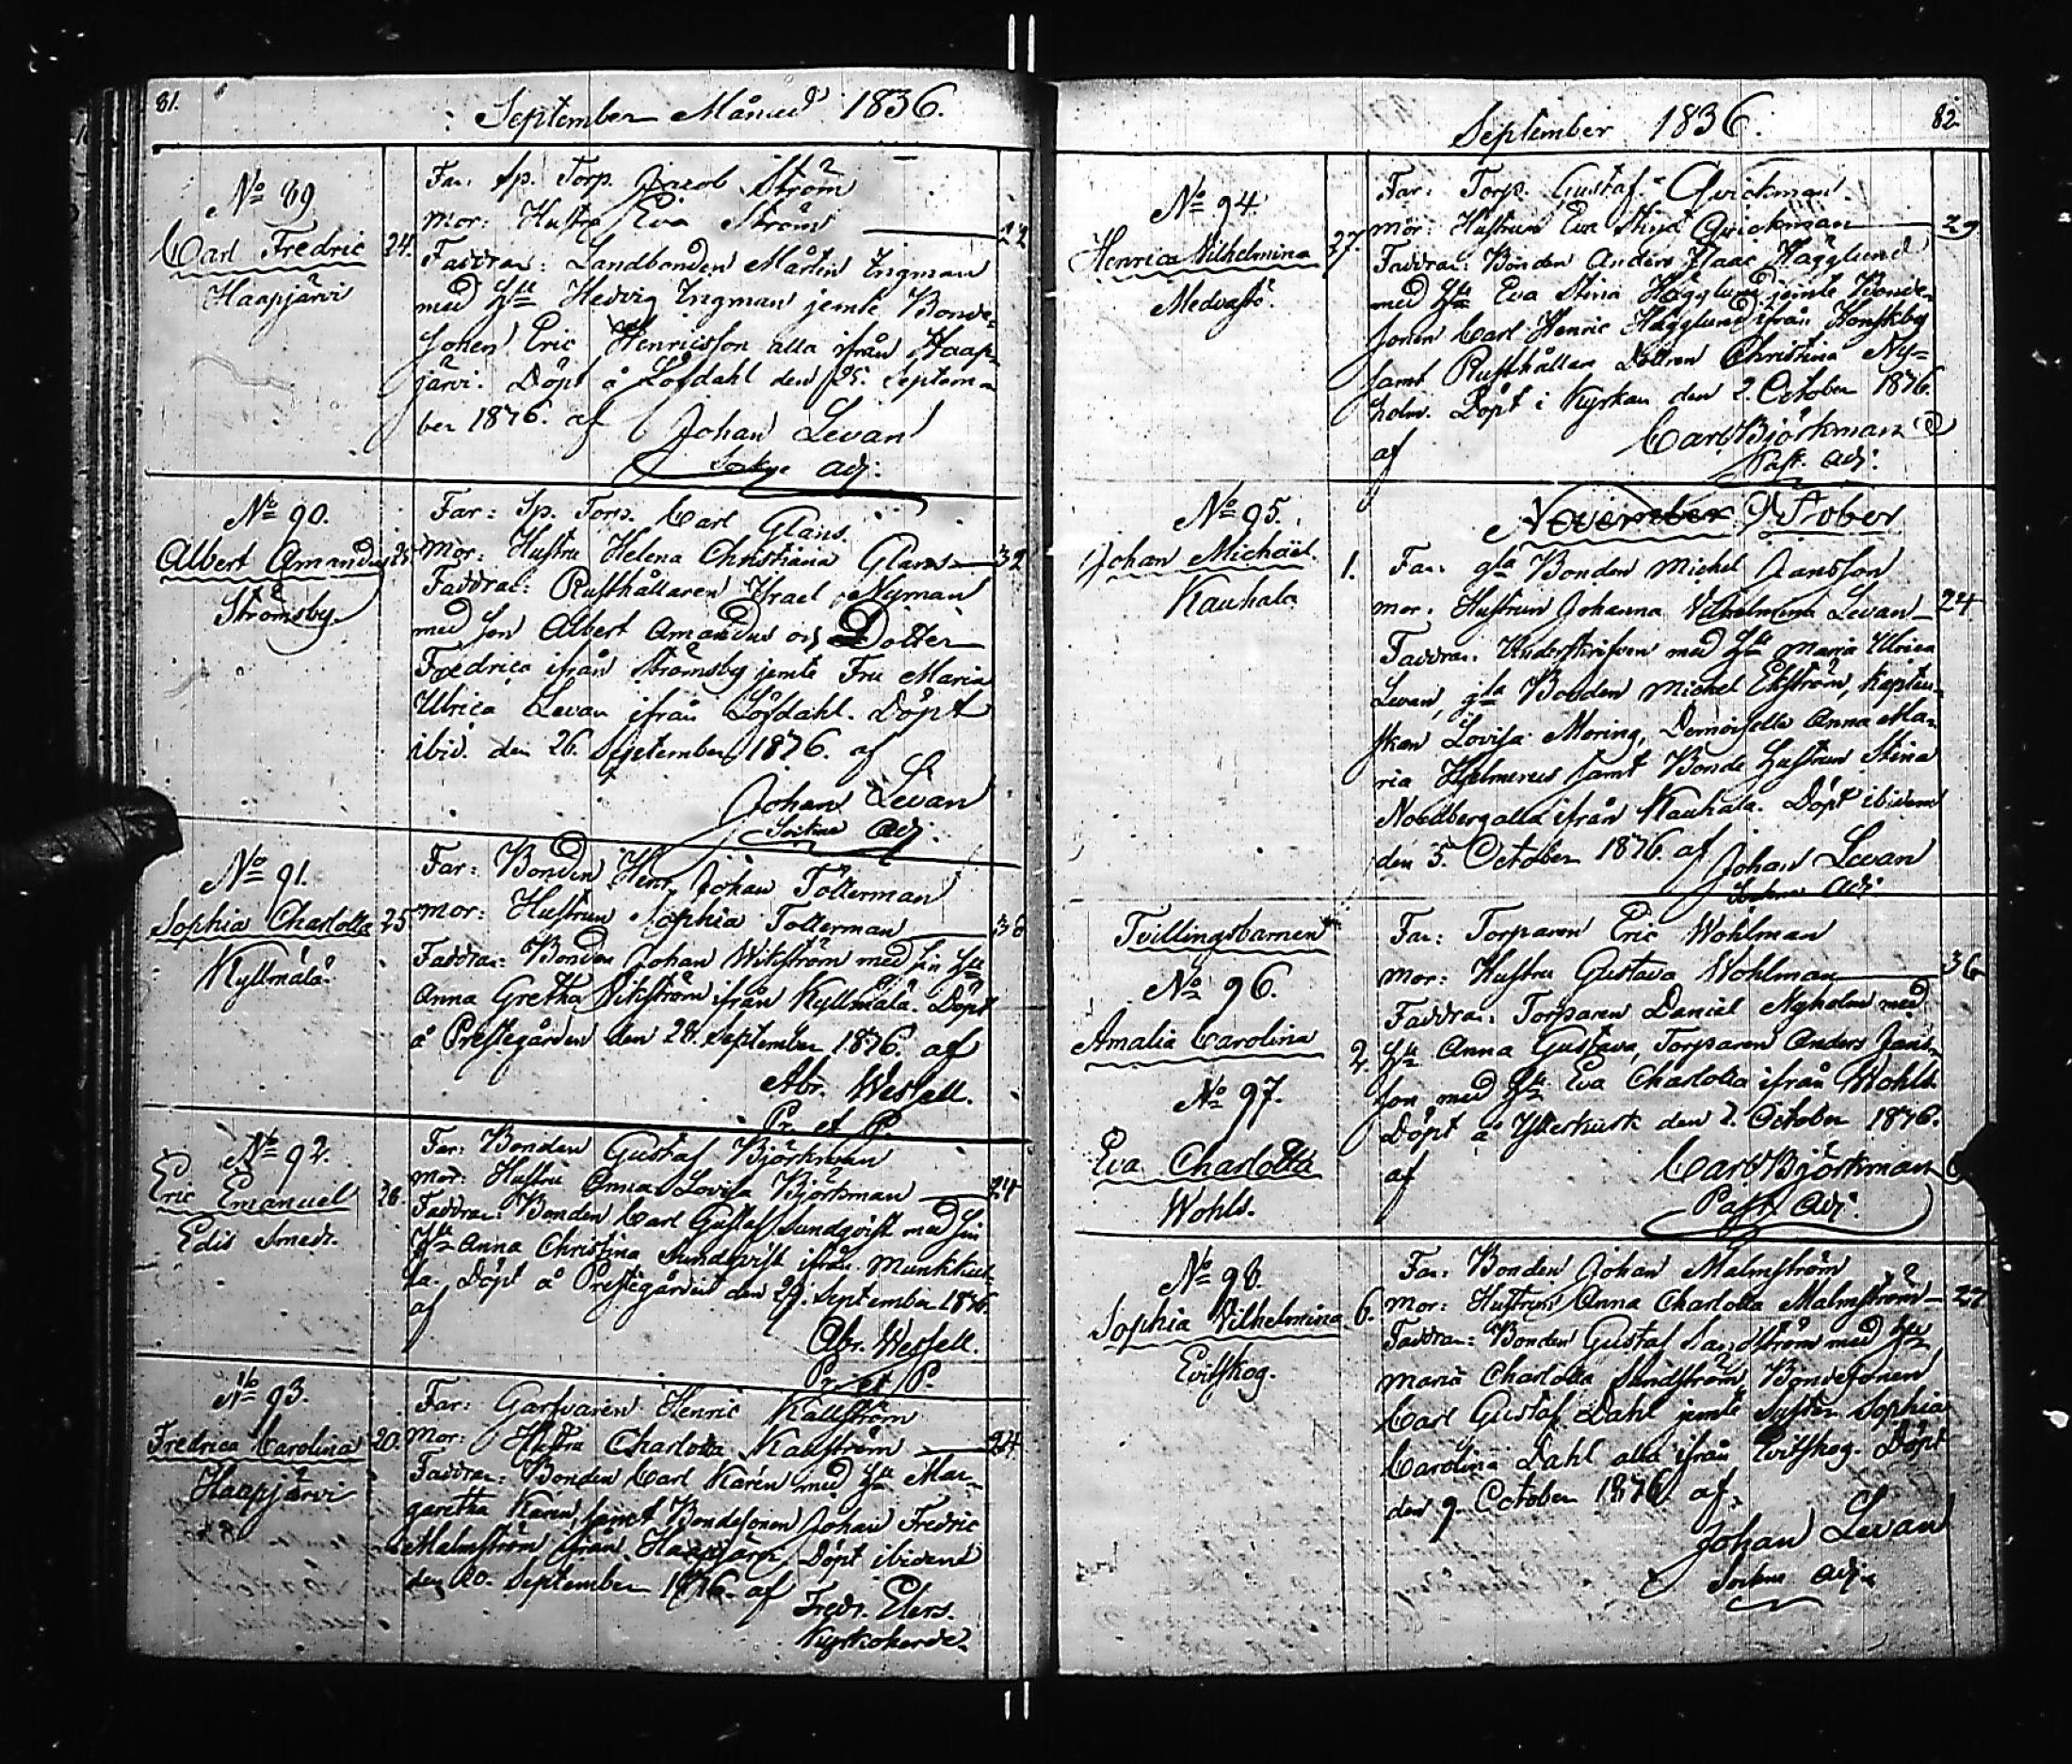 81.
September Månad 1836.
No 89
Carl Fredric
Haapjärvi
24.
Far: Sp. Torp. Jacob Ström
Mor: Hustru Eva Ström
22
Faddrar: Landbonden Mårtin Ingman
med Hu Hedvig Ingman jemte Bonde-
Sonen Eric Henricsson alla ifrån Haap-
järvi. Döpt å Löfdahl den 25. Septem-
ber 1836. af
Johan Levan
adj:
No 90.
Albert Amandus
Strömsby.
25.
Far: Sp. Torp. Carl Glans.
Mor: Hustru Helena Christiana Glans
32
Faddrar: Rusthållaren Israel Nyman
med Son Albert Amandus och Dotter
Fredrica ifrån Strömsby jemte Fru Maria
Ulrica Levan ifrån Löfdahl. Döpt
ibid. den 26. September 1836. af
Johan Levan
Sockne Adj.
No 91.
Sophia Charlotta
Kyllmälä
25
Far: Bonden Henr. Johan Tollerman
Mor: Hustrun Sophia Tollerman
36
Faddrar: Bonden Johan Wikström med sin Hu
Anna Gretha Wikström ifrån Kyllmälä. Döpt
å Prestegården den 28. September 1836. af
Abr. Wessell.
Pr. et P.
No 92.
Eric Emanuel
Edis Smeds.
26.
Far: Bonden Gustaf Björkman
Mor: Hustru Anna Lovisa Björkman
24
Faddrar: Bonden Carl Gustaf Sundqvist med Sin
Hu Anna Christina Sundqvist ifrån Munkkul-
la. Döpt å Prestegården den 29. September 1836.
af
Abr. Wessell.
Pr. et P.
No 93.
Fredrica Carolina
Haapjärvi
20.
Far: Garfvaren Henric Källström
Mor: Hustru Charlotta Källström
24
Faddrar: Bonden Carl Karén med Hu Mar-
garetha Karén, samt Bondesonen Johan Fredric
Malmström ifrån Haapjärvi, Döpt ibidem
den 20. September 1836. af
Fredr. Elers.
Kyrkoherde.
September 1836.
82.
No 94.
Henrica Vilhelmina
Medvastö.
27.
Far: Torp. Gustaf Qvickman
Mor: Hustrun Eva Stina Qvickman
29
Faddrar: Bonden Anders Isaac Hägglund
med Hu Eva Stina Hägglund jemte Bonde-
Sonen Carl Henric Hägglund ifrån Honskby
samt Rusthållar Dottren Christina Ny-
holm. Döpt i Kyrkan den 2. October 1836.
af
Carl Björkman
Past. Adj.
November October
No 95.
Johan Michäel.
Kauhala
1.
Far: gla Bonden Michel Jansson
Mor: Hustrun Johanna Vilhelmina Levan
24
Faddrar: Underskrifven med Hu Maria Ulrica
Levan, gla Bonden Michel Ekström, Kapten-
skan Lovisa Moring, Demoiselle Anna Ma-
ria Hjelmerus samt Bonde Hustrun Stina
Nordberg alla ifrån Kauhala. Döpt ibidem
den 5. October 1836. af
Johan Levan
Sockne Adj.
Tvillingsbarnen
No 96.
Amalia Carolina
No 97.
Eva Charlotta
Wohls.
2.
Far: Torparen Eric Wohlman
Mor: Hustru Gustava Wohlman
36
Faddrar: Torparen Daniel Nyholm med
Hu Anna Gustava, Torparen Anders Jans-
son med Hu Eva Charlotta ifrån Wohls.
Döpt å Ytterkurk den 2. October 1836.
af
Carl Björkman
Past. Adj.
No 98.
Sophia Vilhelmina
Evitskog.
6.
Far: Bonden Johan Malmström
Mor: Hustrun Anna Charlotta Malmström
27
Faddrar: Bonden Gustaf Sandström med Hu
Maria Charlotta Sandström, Bondesonen
Carl Gustaf Dahl jemte Syster Sophia
Carolina Dahl alla ifrån Evitskog. Döpt
den 9. October 1836. af
Johan Levan
Sockne Adj.